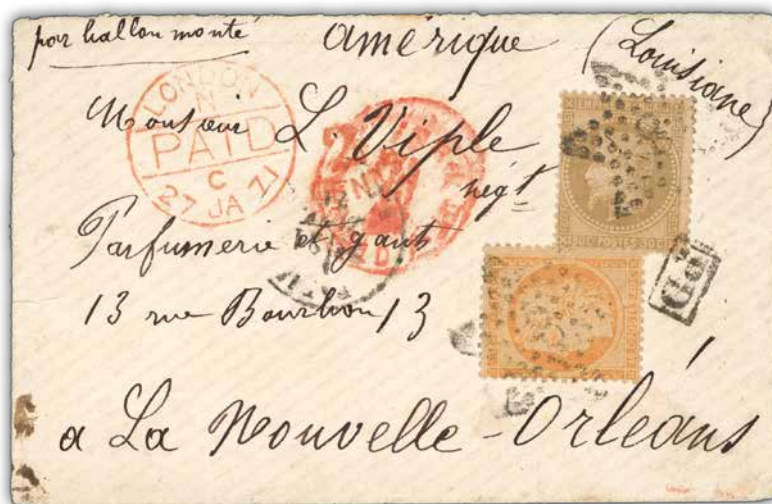 par ballon monté
Amérique (Louisiane)
LONDON
N
PAID
C
27 JA 71
Monsieur L. Viple
négt
Parfumerie et gants
13 rue Bourbon 13
a La Nouvelle-Orléans
PD
POSTES 30C